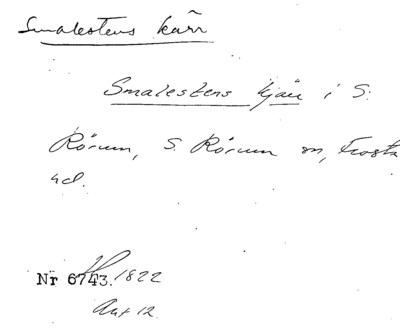 Smalestens kärr
Smalestens kjäu i S.
Rörum, S. Rörum sn, Frosta
hd.
Nr 6743. 1822
Akt 12.